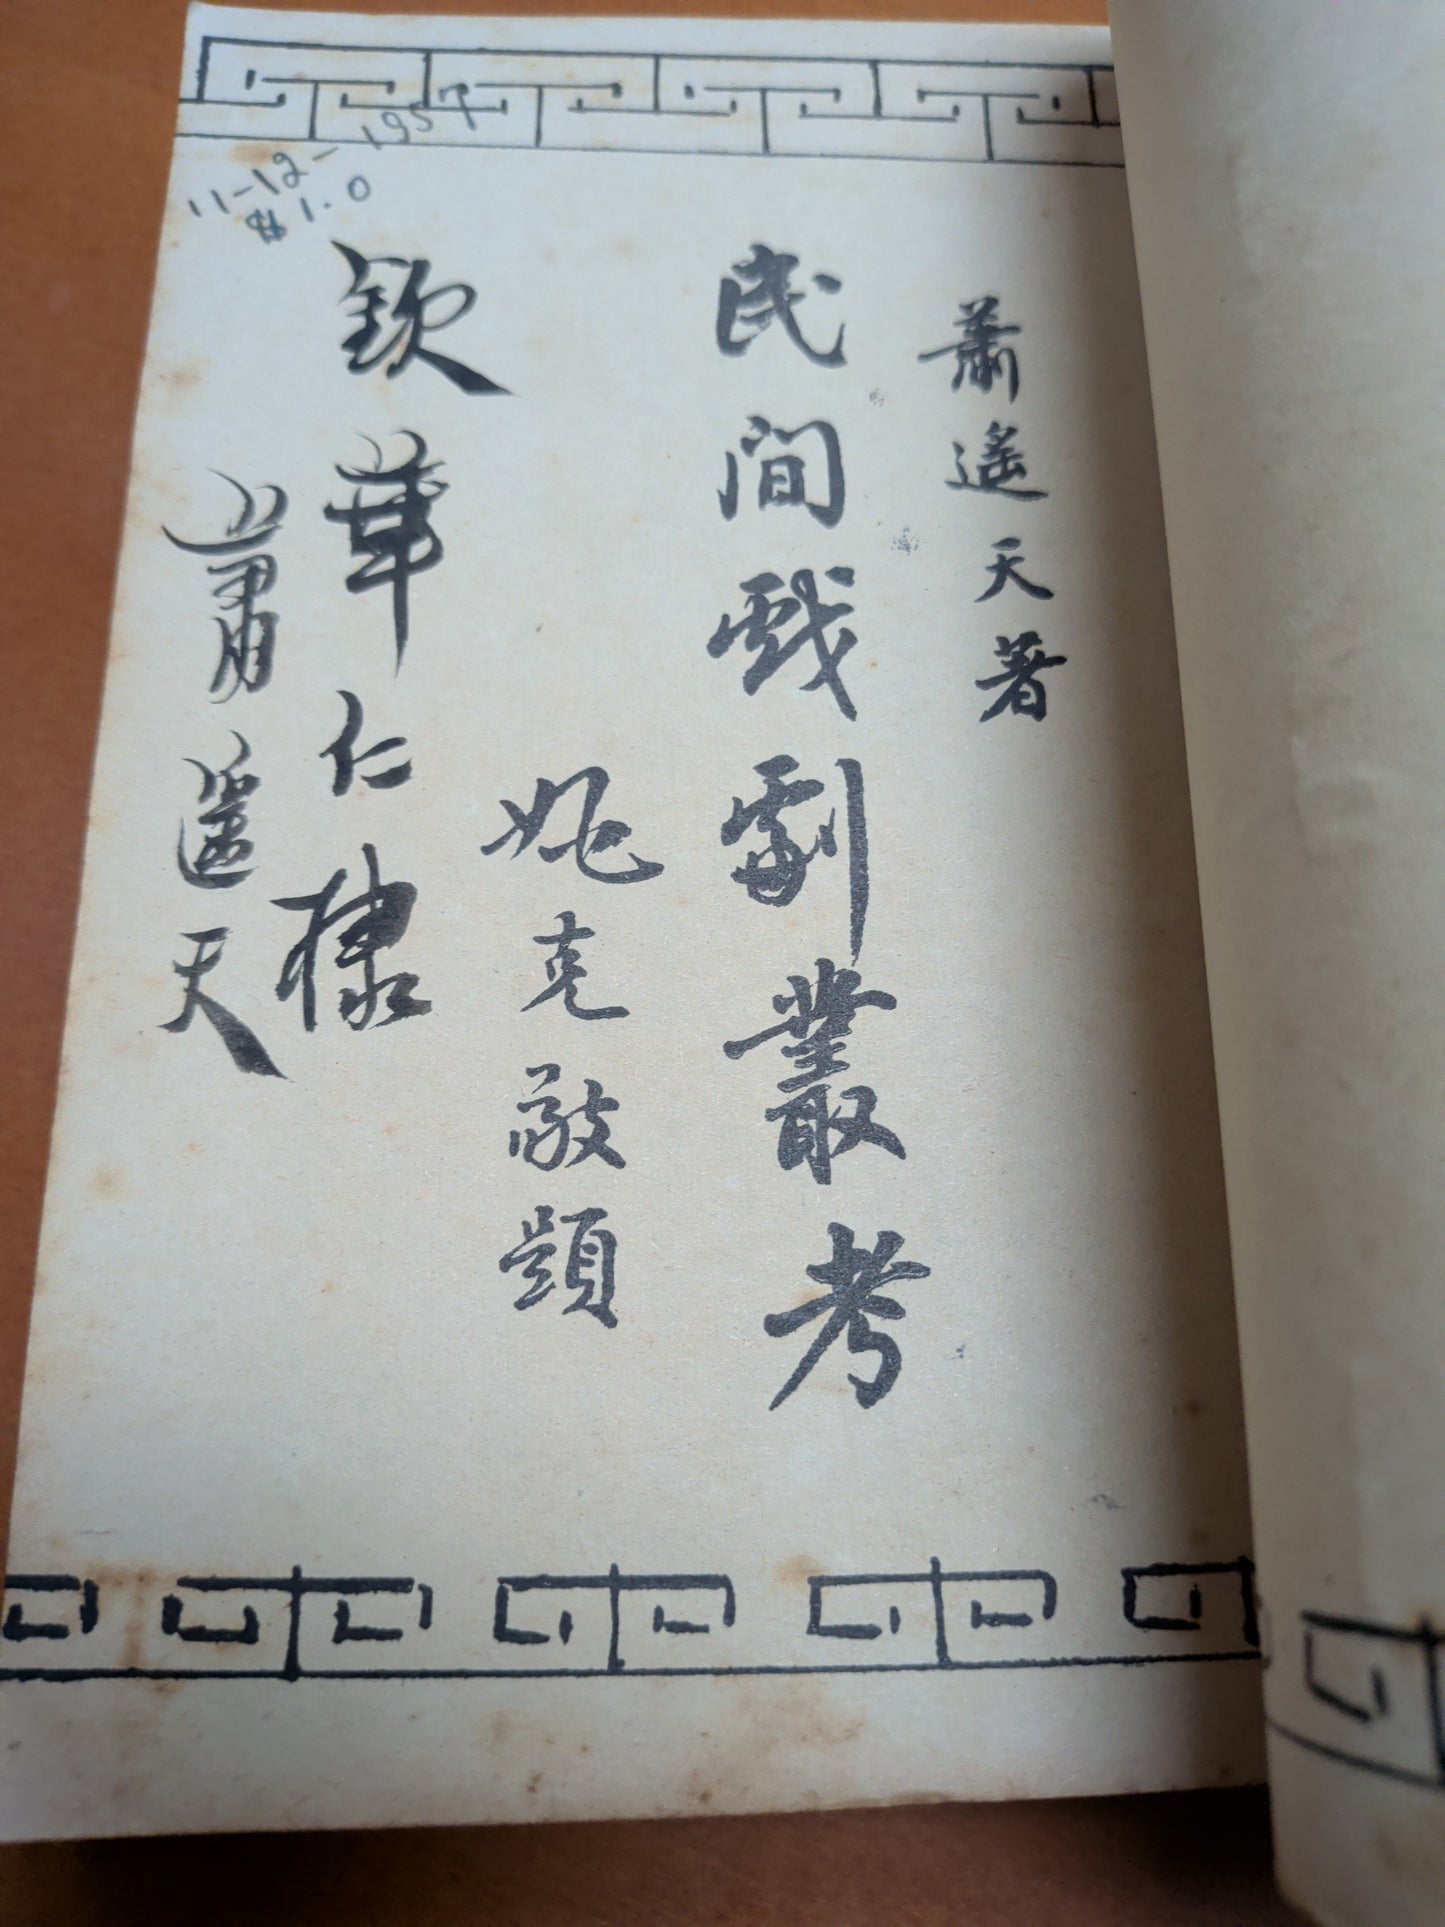 蕭遙天著
民間戲劇叢考
姚克敬題
欽華仁棣
蕭遙天
11-12-1957
$1.0